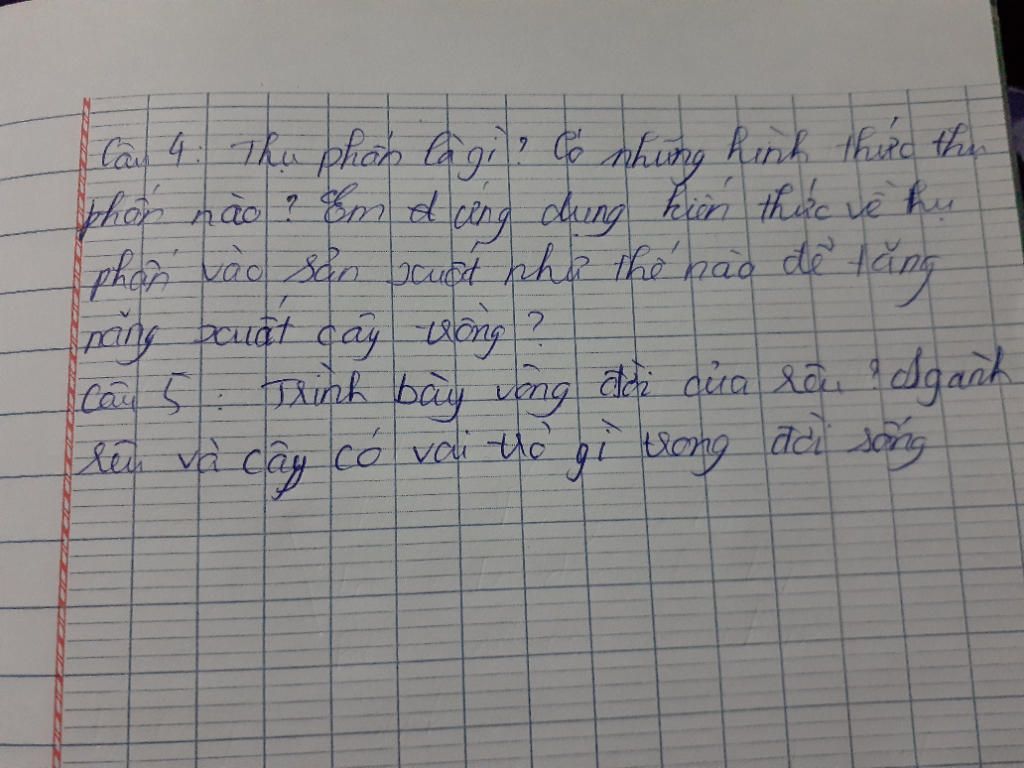 Câu 4: Thụ phấn là gì? Có những hình thức thụ
phấn nào? Em đ ứng dụng kiến thức về thụ
phấn vào sản xuất như thế nào để tăng
năng xuất cây trồng?
Câu 5: Trình bày vòng đời của rêu? Ngành
rêu và cây có vai trò gì trong đời sống